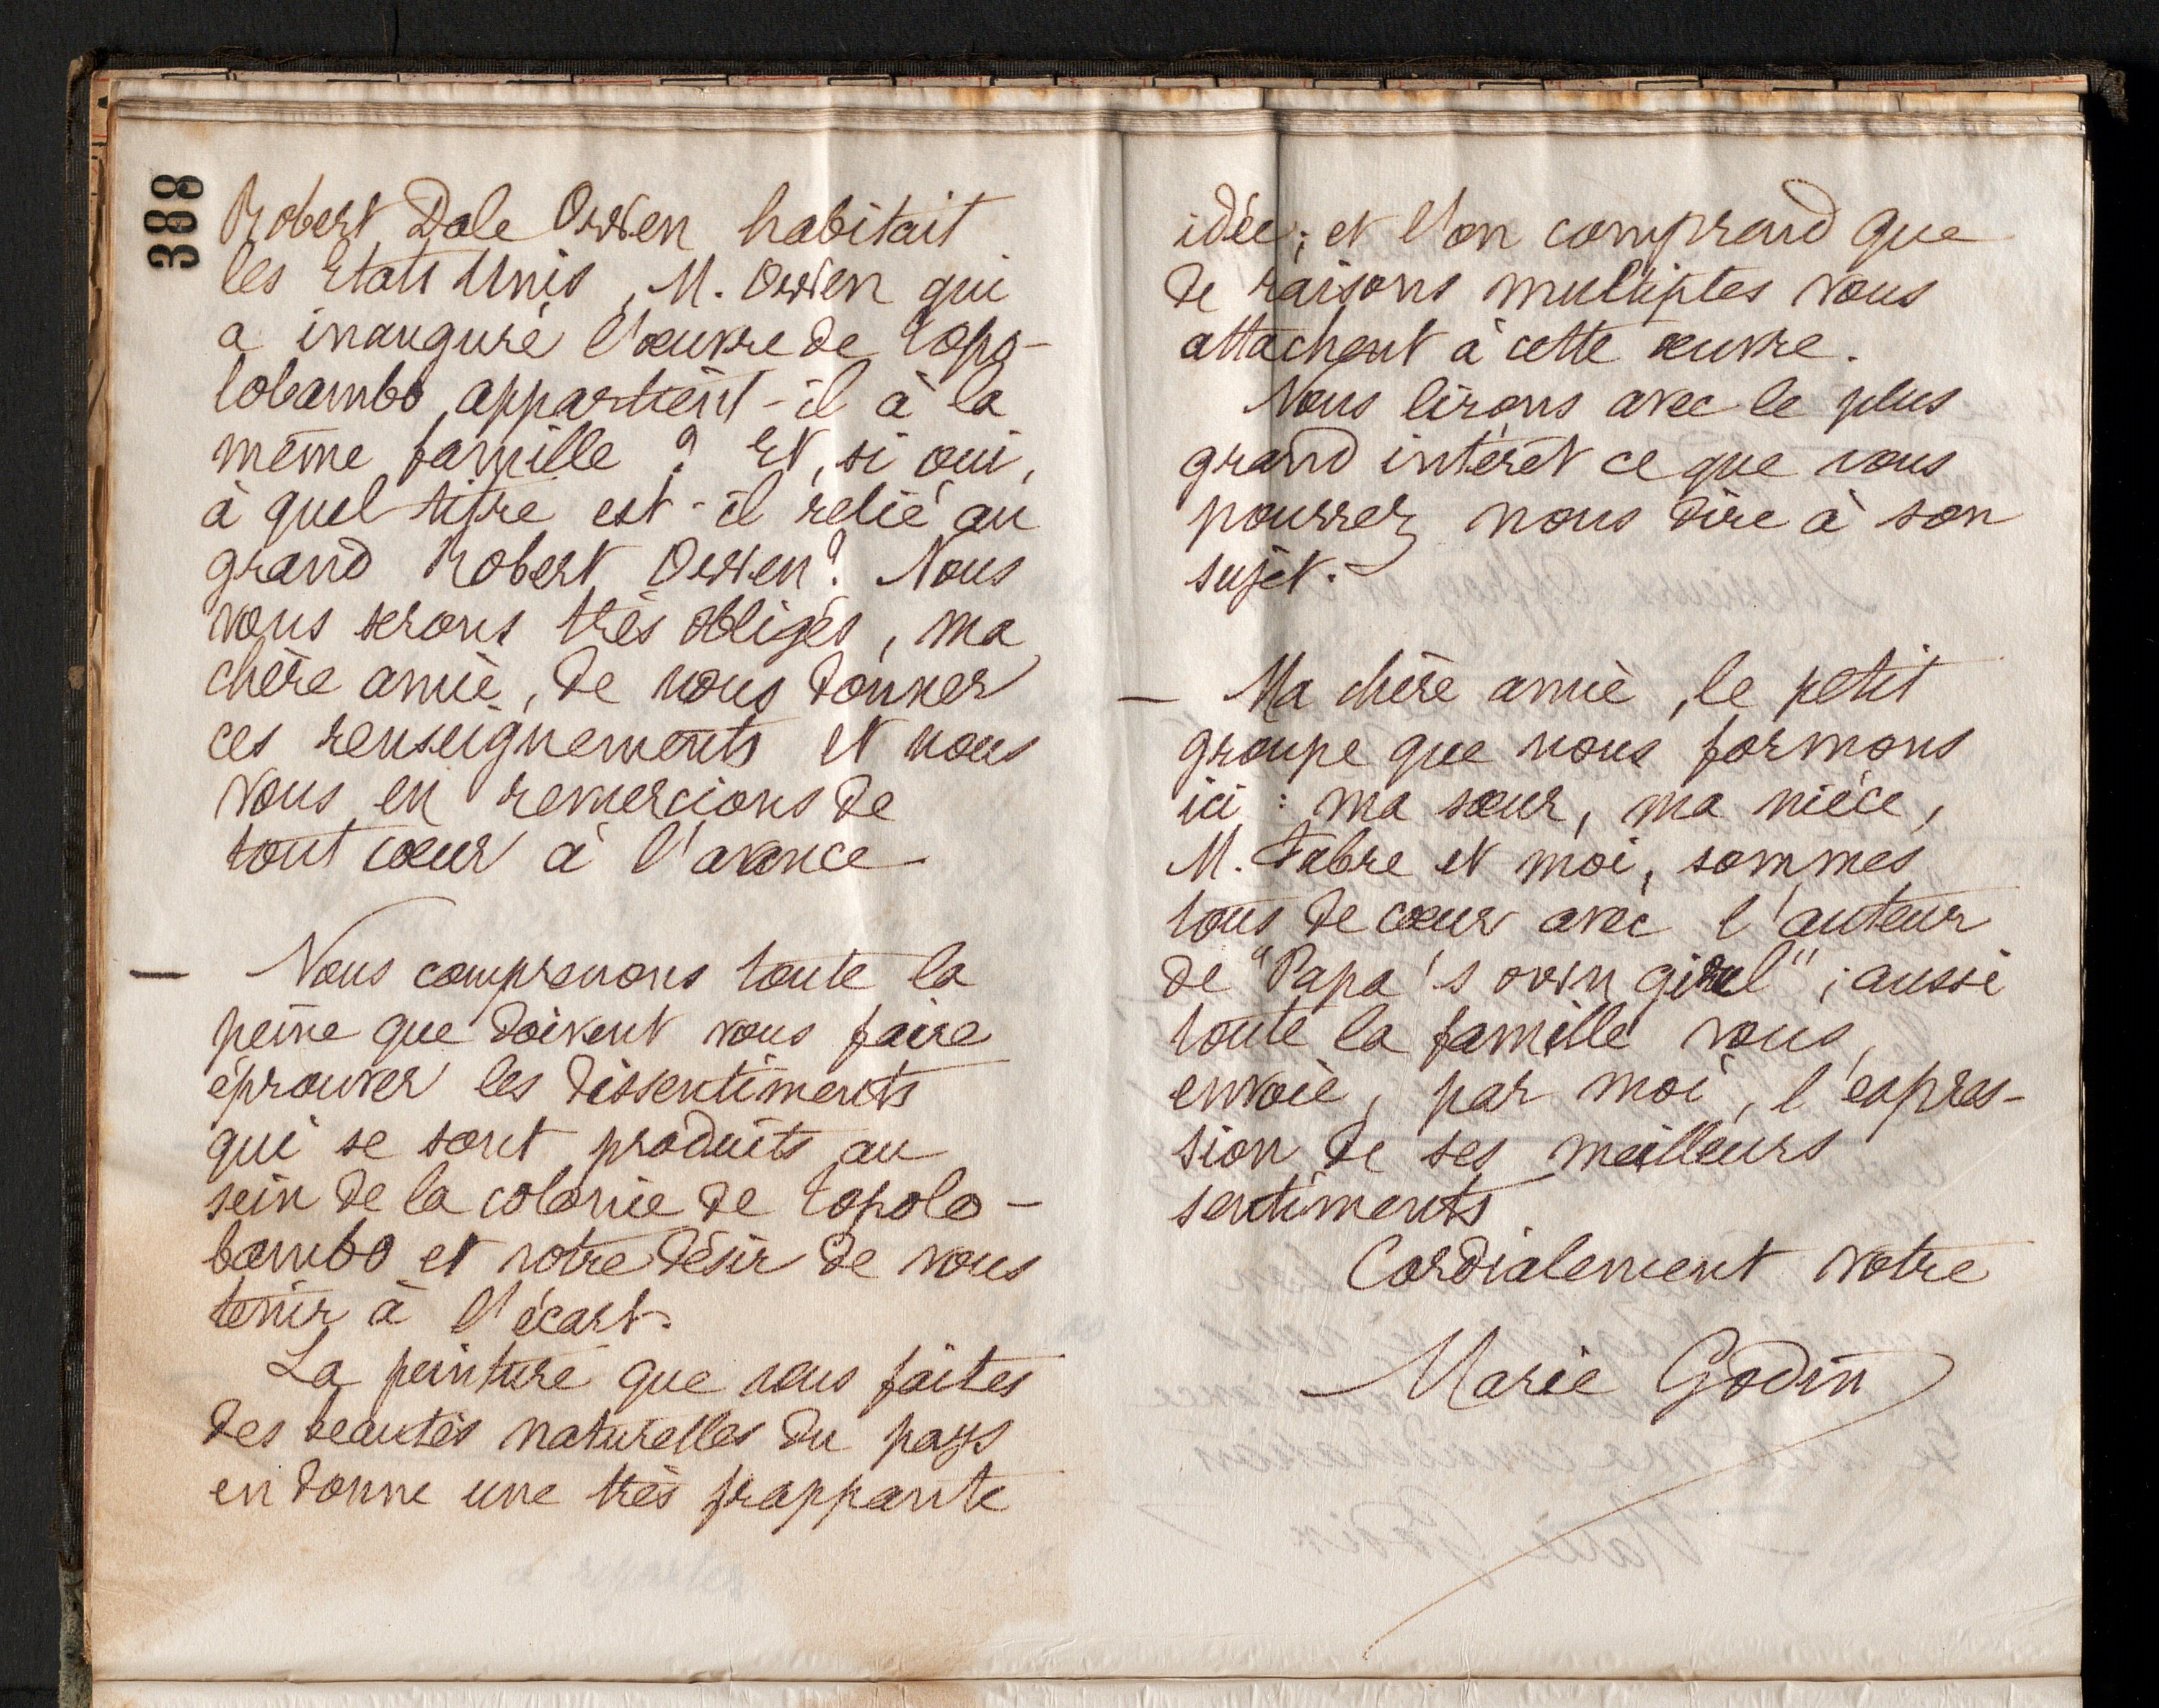 388
Robert Dale Owen habitait
les Etats Unis, M. Owen qui
a inauguré l'œuvre de Topo-
lobambo, appartient-il à la
même famille ? Et, si oui,
à quel titre est-il relié au
grand Robert Owen ? Nous
vous serons très obligés, ma
chère amie, de nous donner
ces renseignements et nous
vous en remercions de
tout cœur à l'avance
— Nous comprenons toute la
peine que doivent vous faire
éprouver les dissentiments
qui se sont produits au
sein de la colonie de Topolo-
bambo et votre désir de vous
tenir à l'écart.
La peinture que vous faites
des beautés naturelles du pays
en donne une très frappante
idée; et l'on comprend que
de raisons multiples vous
attachent à cette œuvre.
Nous lirons avec le plus
grand intérêt ce que vous
pourrez nous dire à son
sujet.
— Ma chère amie, le petit
groupe que nous formons
ici : ma sœur, ma nièce,
M. Fabre et moi, sommes
tous de cœur avec l'auteur
de "Papa's own girl"; aussi
toute la famille vous
envoie, par moi, l'expres-
sion de ses meilleurs
sentiments
Cordialement votre
Marie Godin